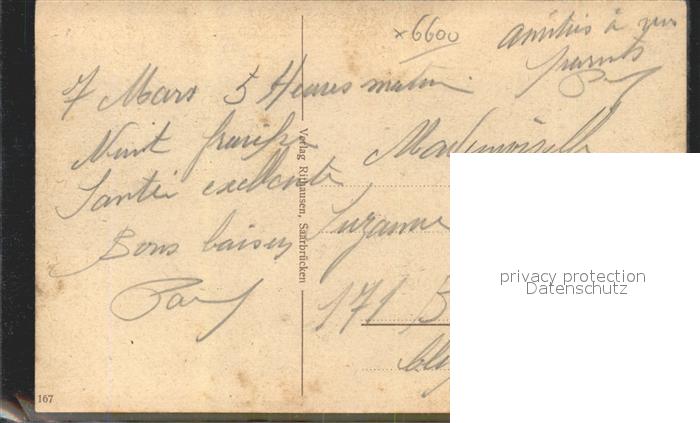 x6600
amitiés à vos
parents
7 Mars 5 Heures matin.
Nuit fraiche
Santé excellente
Bons baisers
Mademoiselle
Suzanne
171 B
Verlag Rithausen, Saarbrücken
167
privacy protection
Datenschutz